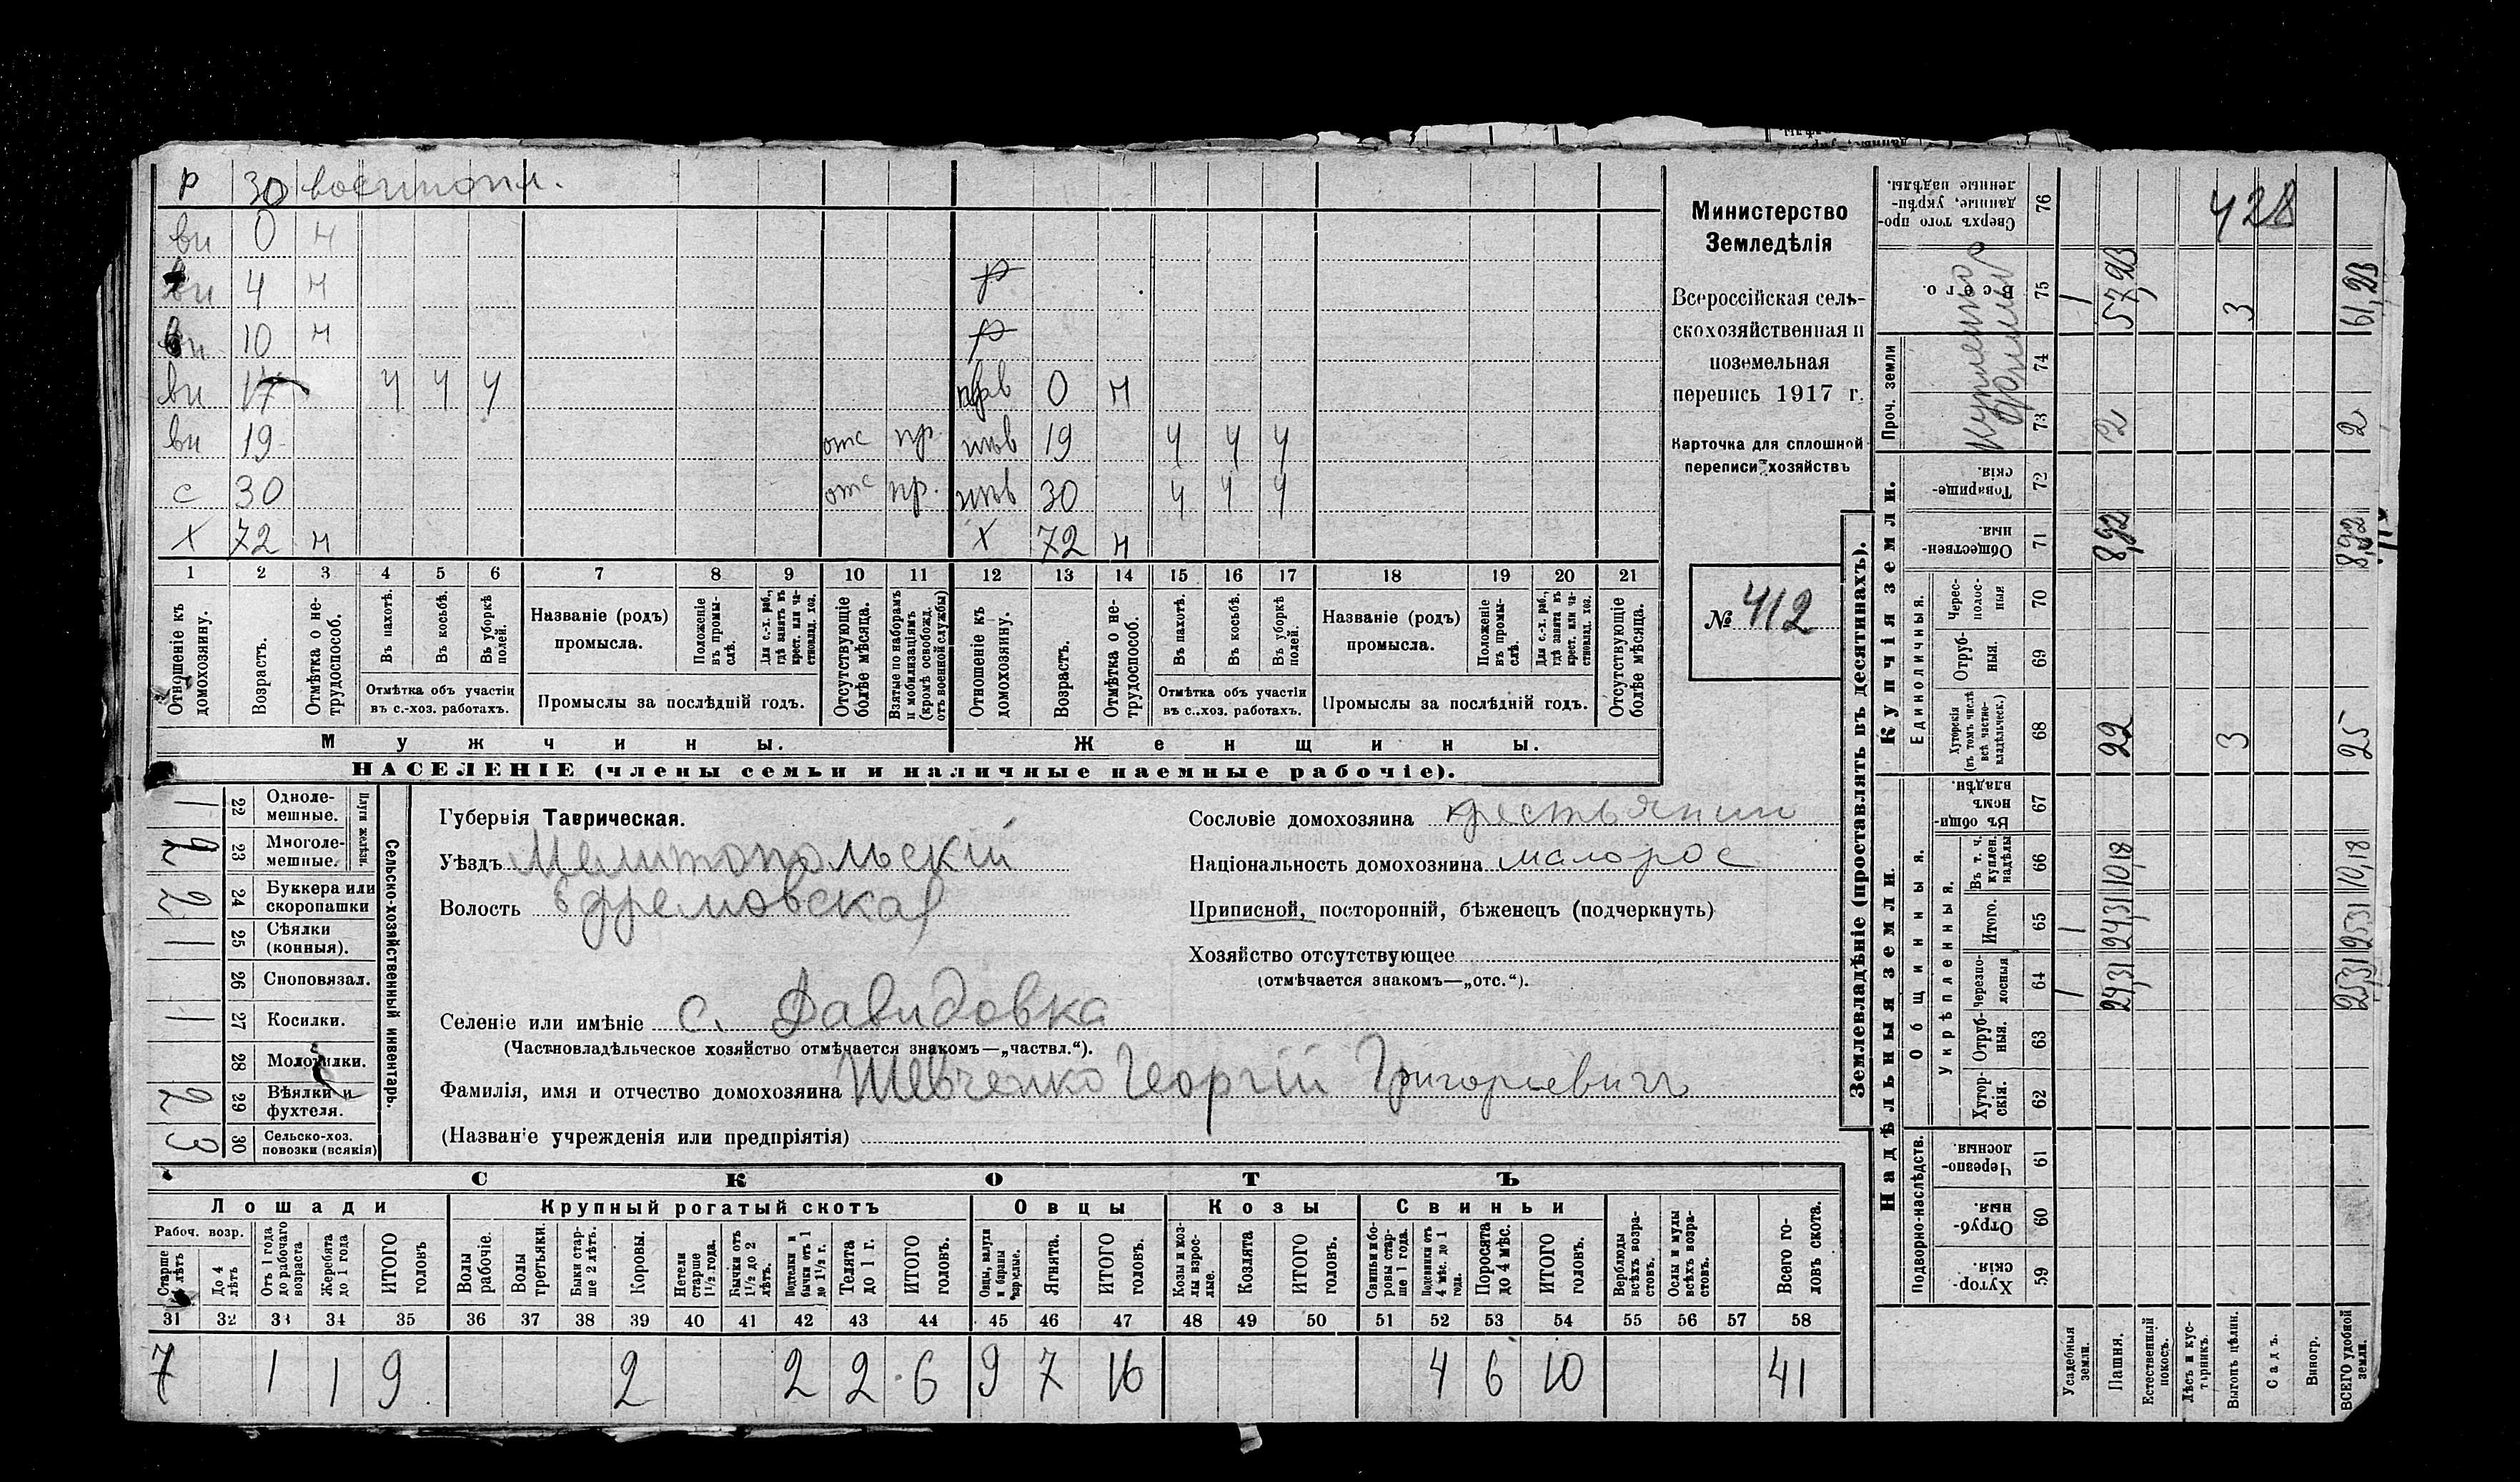 р 30 военнопл.
вн 0 н
вн 4 н р
вн 10 н р
вн 17 ч ч ч 0 н
вн 19 отс пр. нев 19 ч ч ч
с 30 отс пр. нев 30 ч ч ч
х 72 н х 72 н
1 2 3 4 5 6 7 8 9 10 11 12 13 14 15 16 17 18 19 20 21
Отношеніе къ домохозяину.
Возрастъ.
Отмѣтка о не-трудоспособ.
Въ пахотѣ.
Въ косьбѣ.
Въ уборкѣ полей.
Отмѣтка объ участіи въ с.-хоз. работахъ.
Названіе (родъ) промысла.
Положеніе въ промы-слѣ.
Для с.-х. раб., гдѣ занятъ въ крест. или ча-стновлад. хоз.
Промыслы за послѣдній годъ.
Отсутствующіе болѣе мѣсяца.
Взятые по наборамъ и мобилизаціямъ (кромѣ освобожд. отъ военной службы)
Отношеніе къ домохозяину.
Возрастъ.
Отмѣтка о не-трудоспособ.
Въ пахотѣ.
Въ косьбѣ.
Въ уборкѣ полей.
Отмѣтка объ участіи въ с.-хоз. работахъ.
Названіе (родъ) промысла.
Положеніе въ промы-слѣ.
Для с.-х. раб., гдѣ занятъ въ крест. или ча-стновлад. хоз.
Промыслы за послѣдній годъ.
Отсутствующіе болѣе мѣсяца.
Мужчины. Женщины.
НАСЕЛЕНІЕ (члены семьи и наличные наемные рабочіе).
Министерство
Земледѣлія
Всероссійская сель-
скохозяйственная и
поземельная
перепись 1917 г.
Карточка для сплошной
переписи хозяйствъ
№ 412
Сельско-хозяйственный инвентарь.
Плуги желѣзн.
1 22 Одноле-мешные.
2 23 Многоле-мешные.
2 24 Буккера или скоропашки
1 25 Сѣялки (конныя).
26 Сноповязал.
1 27 Косилки.
28 Молотилки.
2 29 Вѣялки и фухтеля.
3 30 Сельско-хоз. повозки (всякія)
Губернія Таврическая.
Уѣздъ Мелитопольскій
Волость Ефремовская
Селеніе или имѣніе с. Давидовка
(Частновладѣльческое хозяйство отмѣчается знакомъ—„частвл.“).
Фамилія, имя и отчество домохозяина Шевченко Георгій Григорьевичъ
(Названіе учрежденія или предпріятія)
Сословіе домохозяина крестьянин
Національность домохозяина малорос
Приписной, посторонній, бѣженецъ (подчеркнуть)
Хозяйство отсутствующее
(отмѣчается знакомъ—„отс.“).
СКОТЪ
Лошади Крупный рогатый скотъ Овцы Козы Свиньи
Рабоч. возр.
Старше лѣтъ
До 4 лѣтъ
Отъ 1 года до рабочаго возраста
Жеребята до 1 года
ИТОГО головъ
Волы рабочіе.
Волы третьяки.
Быки стар-ше 2 лѣтъ.
Коровы.
Нетели старше 1½ года.
Бычки отъ 1½ до 2 лѣтъ.
Подтелки и бычки отъ 1 до 1½ г.
Телята до 1 г.
ИТОГО головъ.
Овцы, валухи и бараны взрослые.
Ягнята.
ИТОГО головъ.
Козы и коз-лы взрос-лые.
Козлята
ИТОГО головъ.
Свиньи и бо-ровы стар-ше 1 года.
Подсвинки отъ 4 мѣс. до 1 года.
Поросята до 4 мѣс.
ИТОГО головъ.
Верблюды всѣхъ возра-стовъ.
Ослы и мулы всѣхъ возра-стовъ.
Всего го-ловъ скота.
31 32 33 34 35 36 37 38 39 40 41 42 43 44 45 46 47 48 49 50 51 52 53 54 55 56 57 58
7 1 1 9 2 2 2 6 9 7 16 4 6 10 41
Землевладѣніе (проставлять въ десятинахъ).
Надѣльныя земли. Купчія земли. Проч. земли
Подворно-наслѣдств. Общинныя. Укрѣпленныя. Единоличныя.
Хутор-скія. 59
Отруб-ныя. 60
Черезпо-лосныя. 61
Хутор-скія. 62
Отруб-ныя. 63
Черезпо-лосныя 64
Итого. 65
Въ т. ч. куплен. надѣлы 66
Въ общин-номъ владѣн. 67
Хуторскія (въ томъ числѣ всѣ частно-владѣльческ.) 68
Отруб-ныя. 69
Черес-полос-ныя 70
Обществен-ныя 71
Товарище-скія. 72
73
74
Всего. 75
Сверхъ того про-данные, укрѣп-ленные надѣлы. 76
Усадебныя земли. 1 1 1
Пашня. 24,31 24,31 10,18 22 8,92 2 57,23
Естественный покосъ.
Лѣсъ и кус-тарникъ.
Выгонъ цѣлин. 3 3
Садъ.
Виногр.
ВСЕГО удобной земли. 25,31 25,31 10,18 25 8,92 2 61,23
428